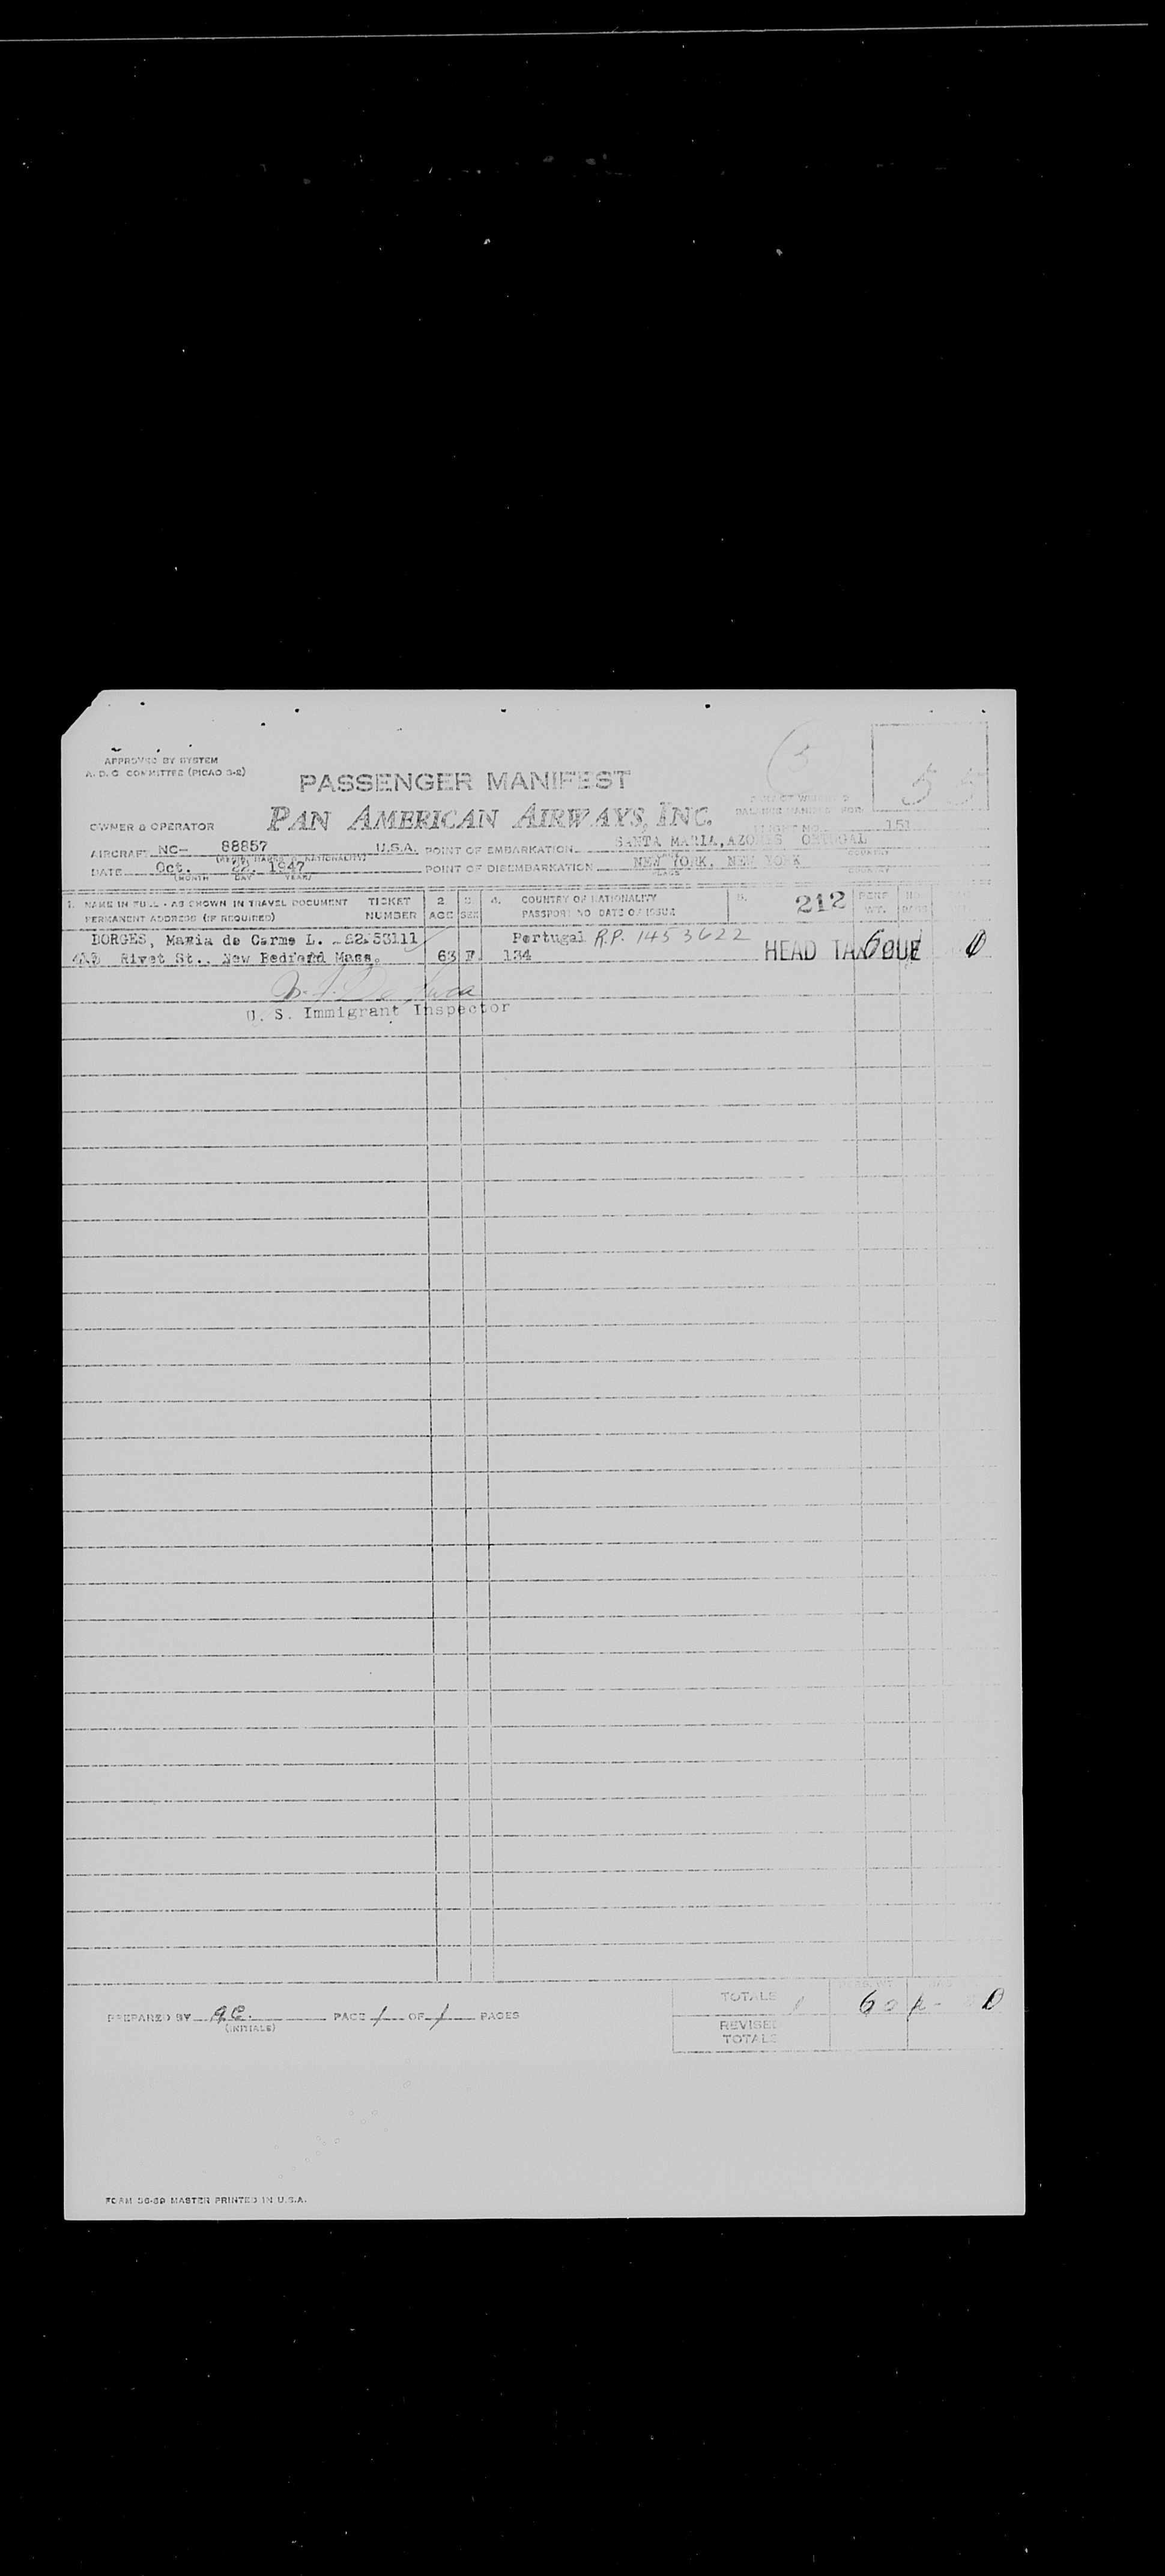 APPROVED BY SYSTEM
A. D. C. COMMITTEE (PICAO S-2)
PASSENGER MANIFEST
55
OWNER & OPERATOR
PAN AMERICAN AIRWAYS, INC.
FLIGHT NO. 151
AIRCRAFT NC- 88857 U.S.A. POINT OF EMBARKATION SANTA MARIA, AZORES
COUNTRY
DATE Oct. 22, 1947 POINT OF DISEMBARKATION NEW YORK, NEW YORK
(MONTH DAY YEAR) PLACE COUNTRY
1. NAME IN FULL - AS SHOWN IN TRAVEL DOCUMENT TICKET 2 3. 4. COUNTRY OF NATIONALITY 5. 212
PERMANENT ADDRESS (IF REQUIRED) NUMBER AGE SEX PASSPORT NO DATE OF ISSUE WT.
BORGES, Maria de Carme L. Portugal R.P. 1453622
Rivet St., New Bedford Mass. 63 F 134 HEAD TAX DUE
U. S. Immigrant Inspector
TOTALS 60
PREPARED BY PAGE 1 OF 1 PAGES
(INITIALS)
REVISED
TOTALS
MASTER PRINTED IN U.S.A.